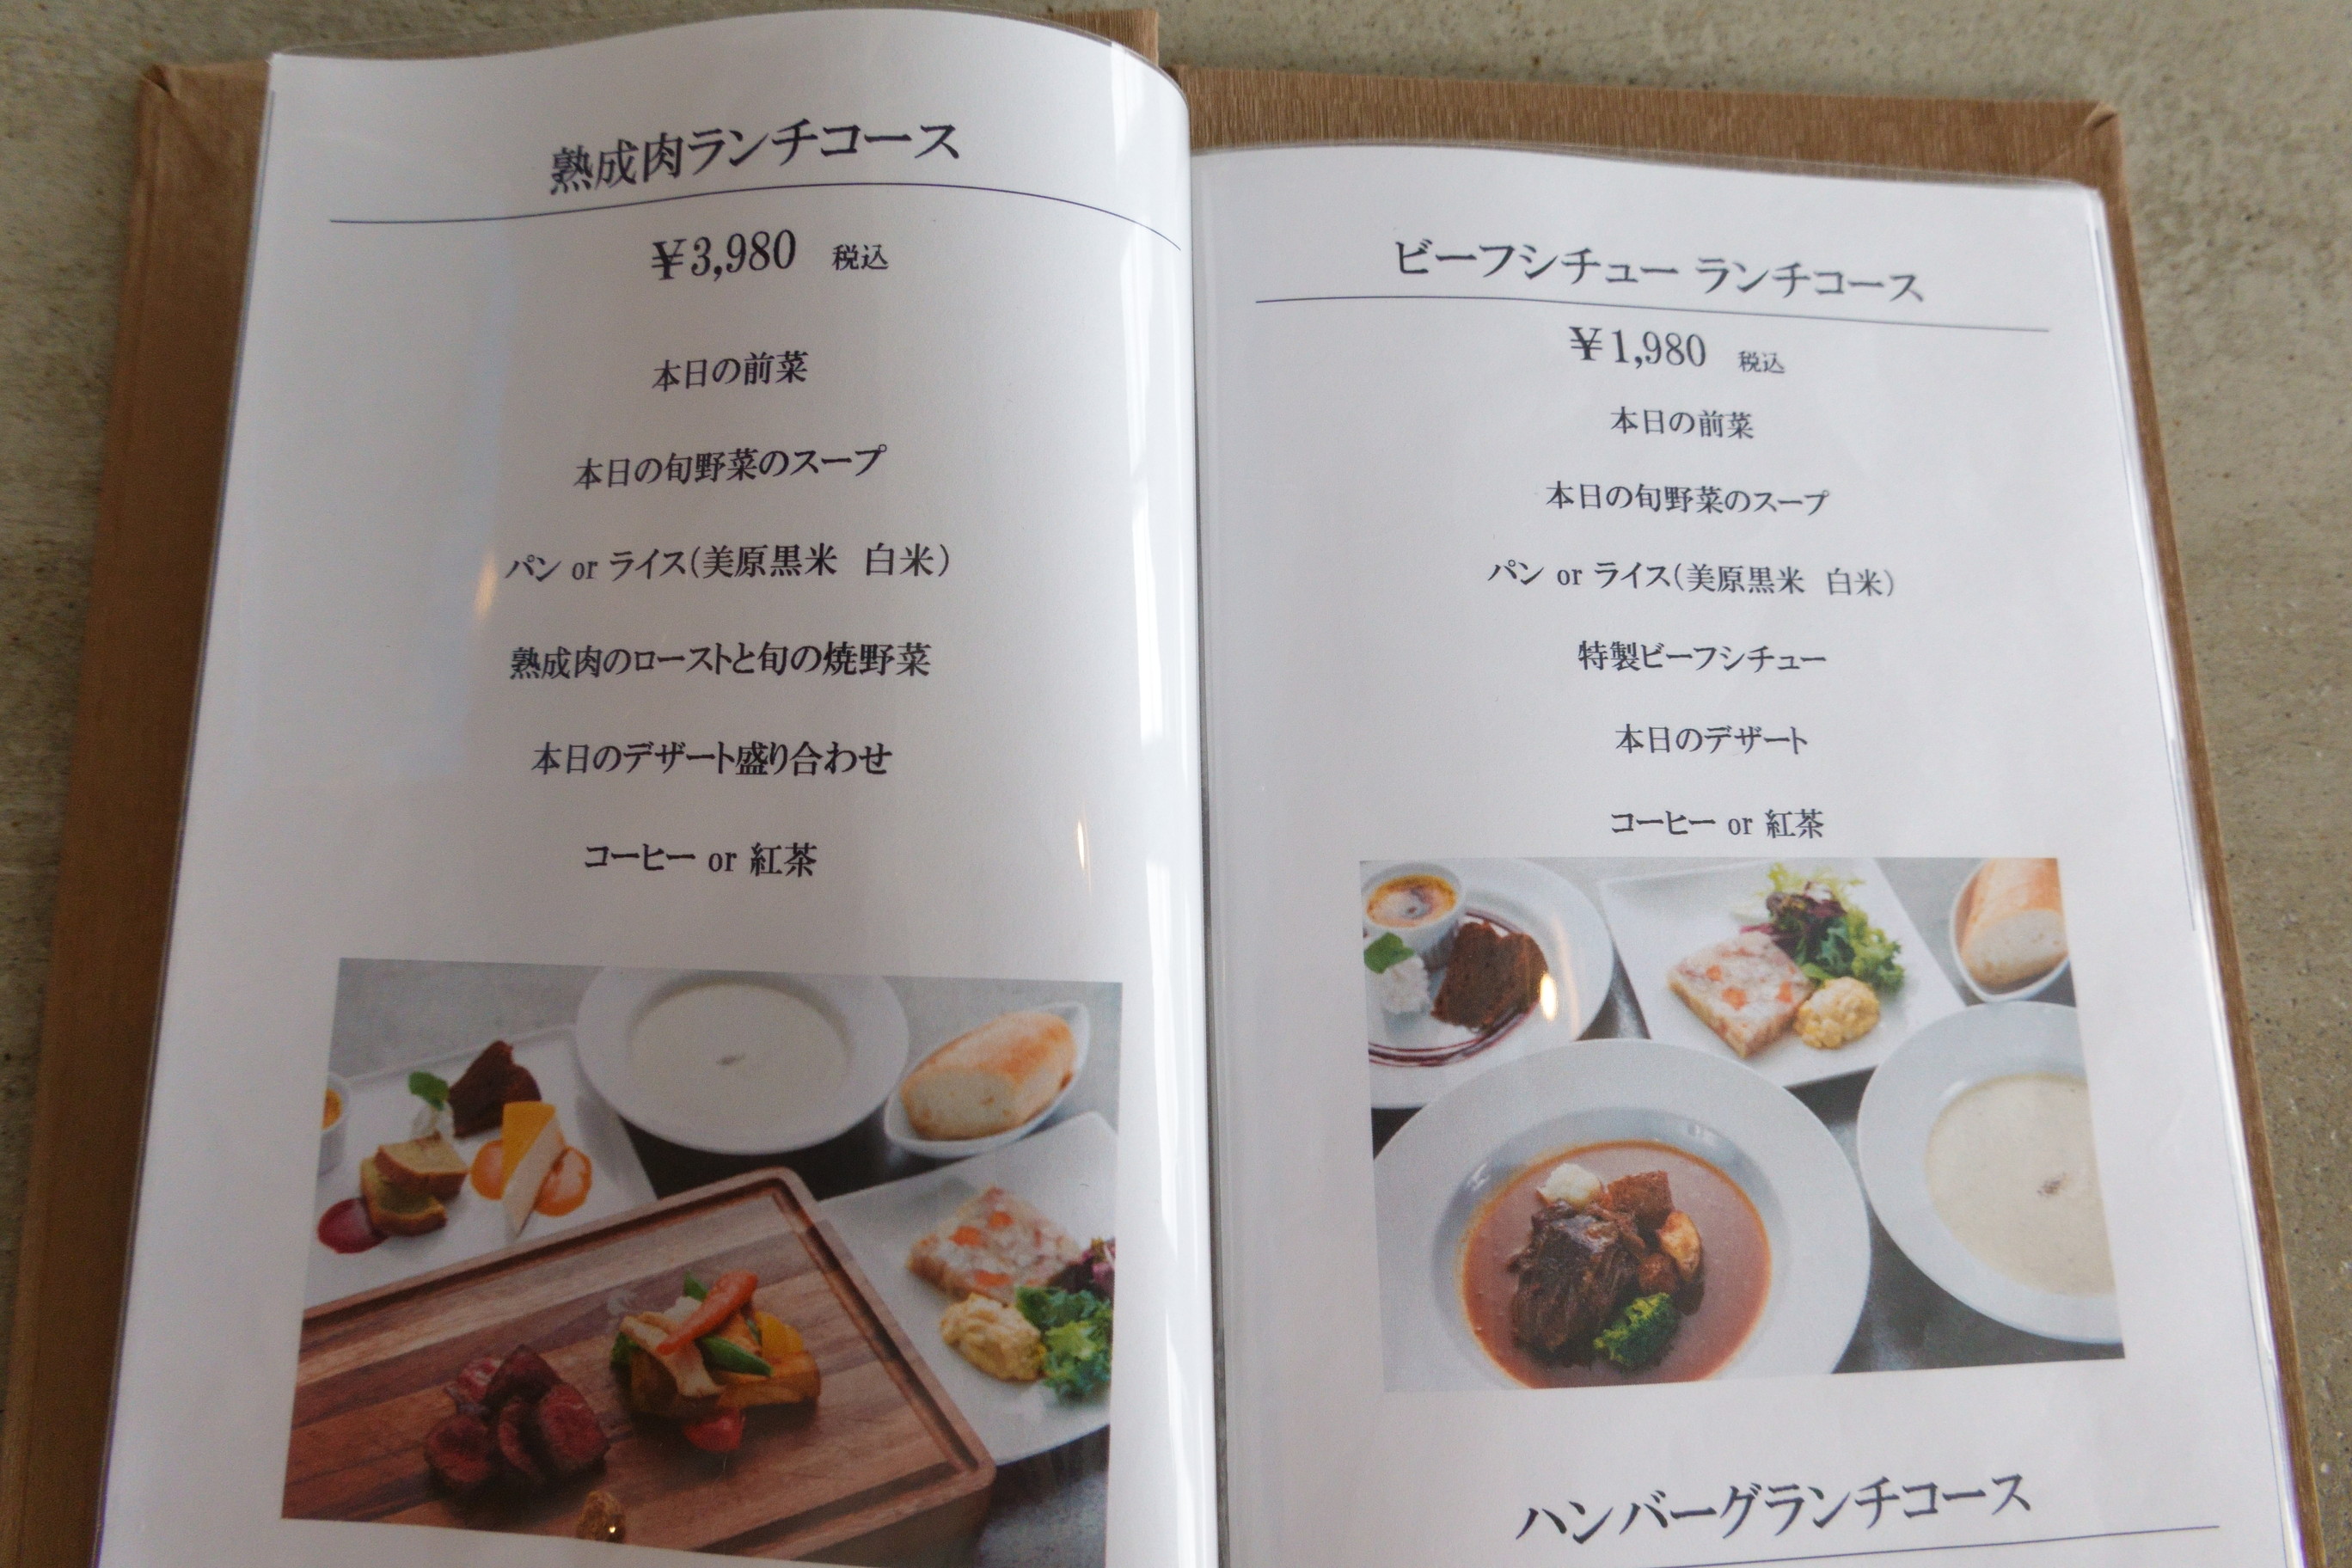 熟成肉ランチコース
￥3,980 税込
本日の前菜
本日の旬野菜のスープ
パン or ライス(美原黒米 白米)
熟成肉のローストと旬の焼野菜
本日のデザート盛り合わせ
コーヒー or 紅茶
ビーフシチュー ランチコース
￥1,980 税込
本日の前菜
本日の旬野菜のスープ
パン or ライス(美原黒米 白米)
特製ビーフシチュー
本日のデザート
コーヒー or 紅茶
ハンバーグランチコース